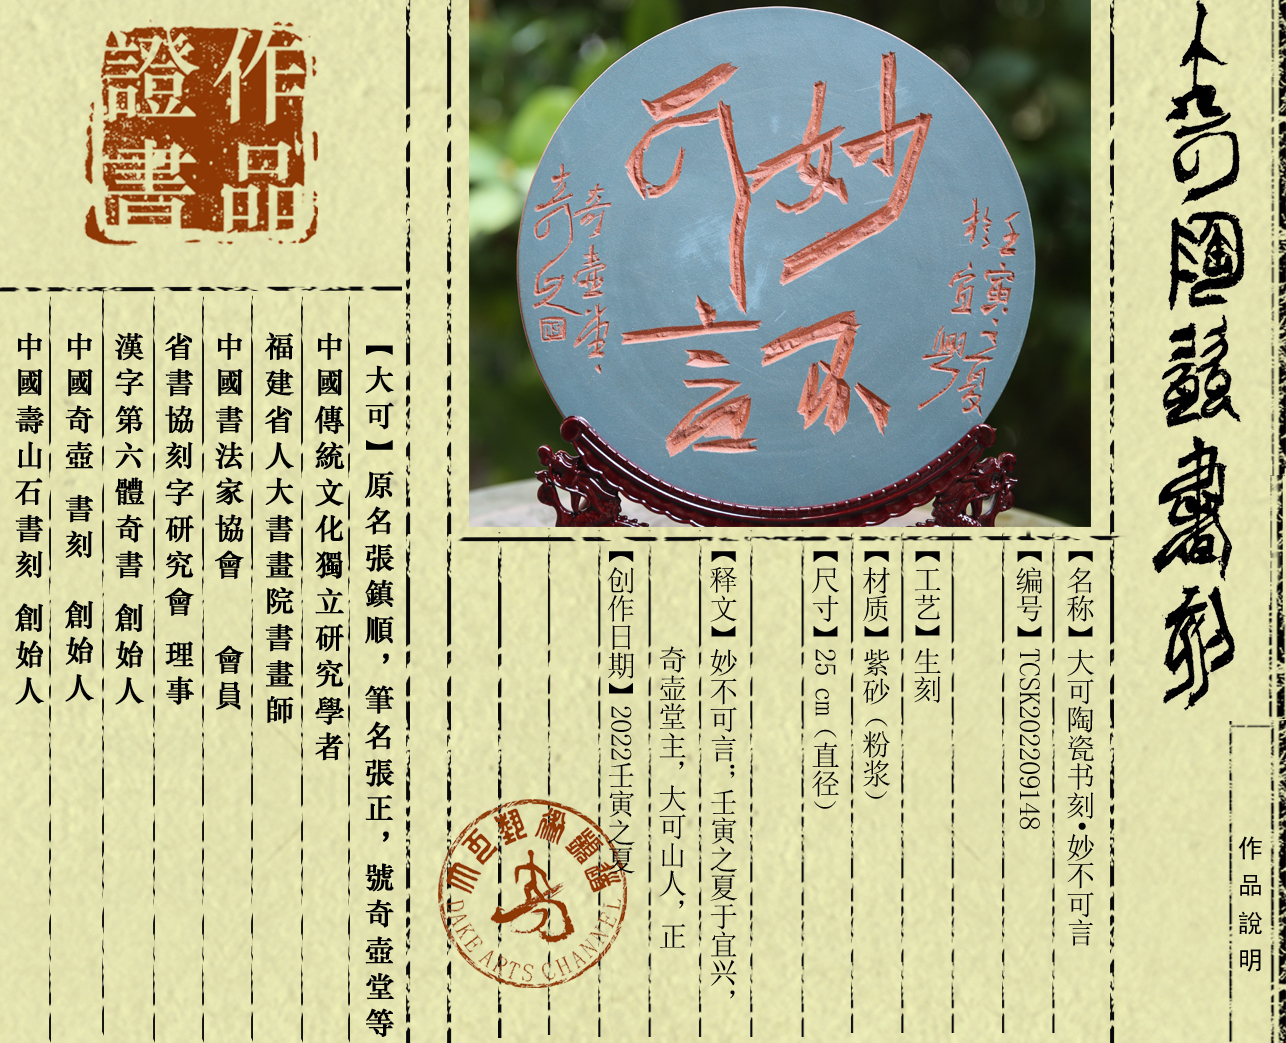 大可陶瓷書刻
作品說明
壬寅之夏
於宜興
妙不可言
奇壺堂
大可
正
【名称】大可陶瓷书刻•妙不可言
【编号】TCSK202209148
【工艺】生刻
【材质】紫砂（粉浆）
【尺寸】25 cm（直径）
【释文】妙不可言；壬寅之夏于宜兴，
奇壶堂主，大可山人，正
【创作日期】2022壬寅之夏
DAKE ARTS CHANNEL
作品
證書
【大可】原名張鎮順，筆名張正，號奇壺堂等
中國傳統文化獨立研究學者
福建省人大書畫院書畫師
中國書法家協會 會員
省書協刻字研究會 理事
漢字第六體奇書 創始人
中國奇壺 書刻 創始人
中國壽山石書刻 創始人